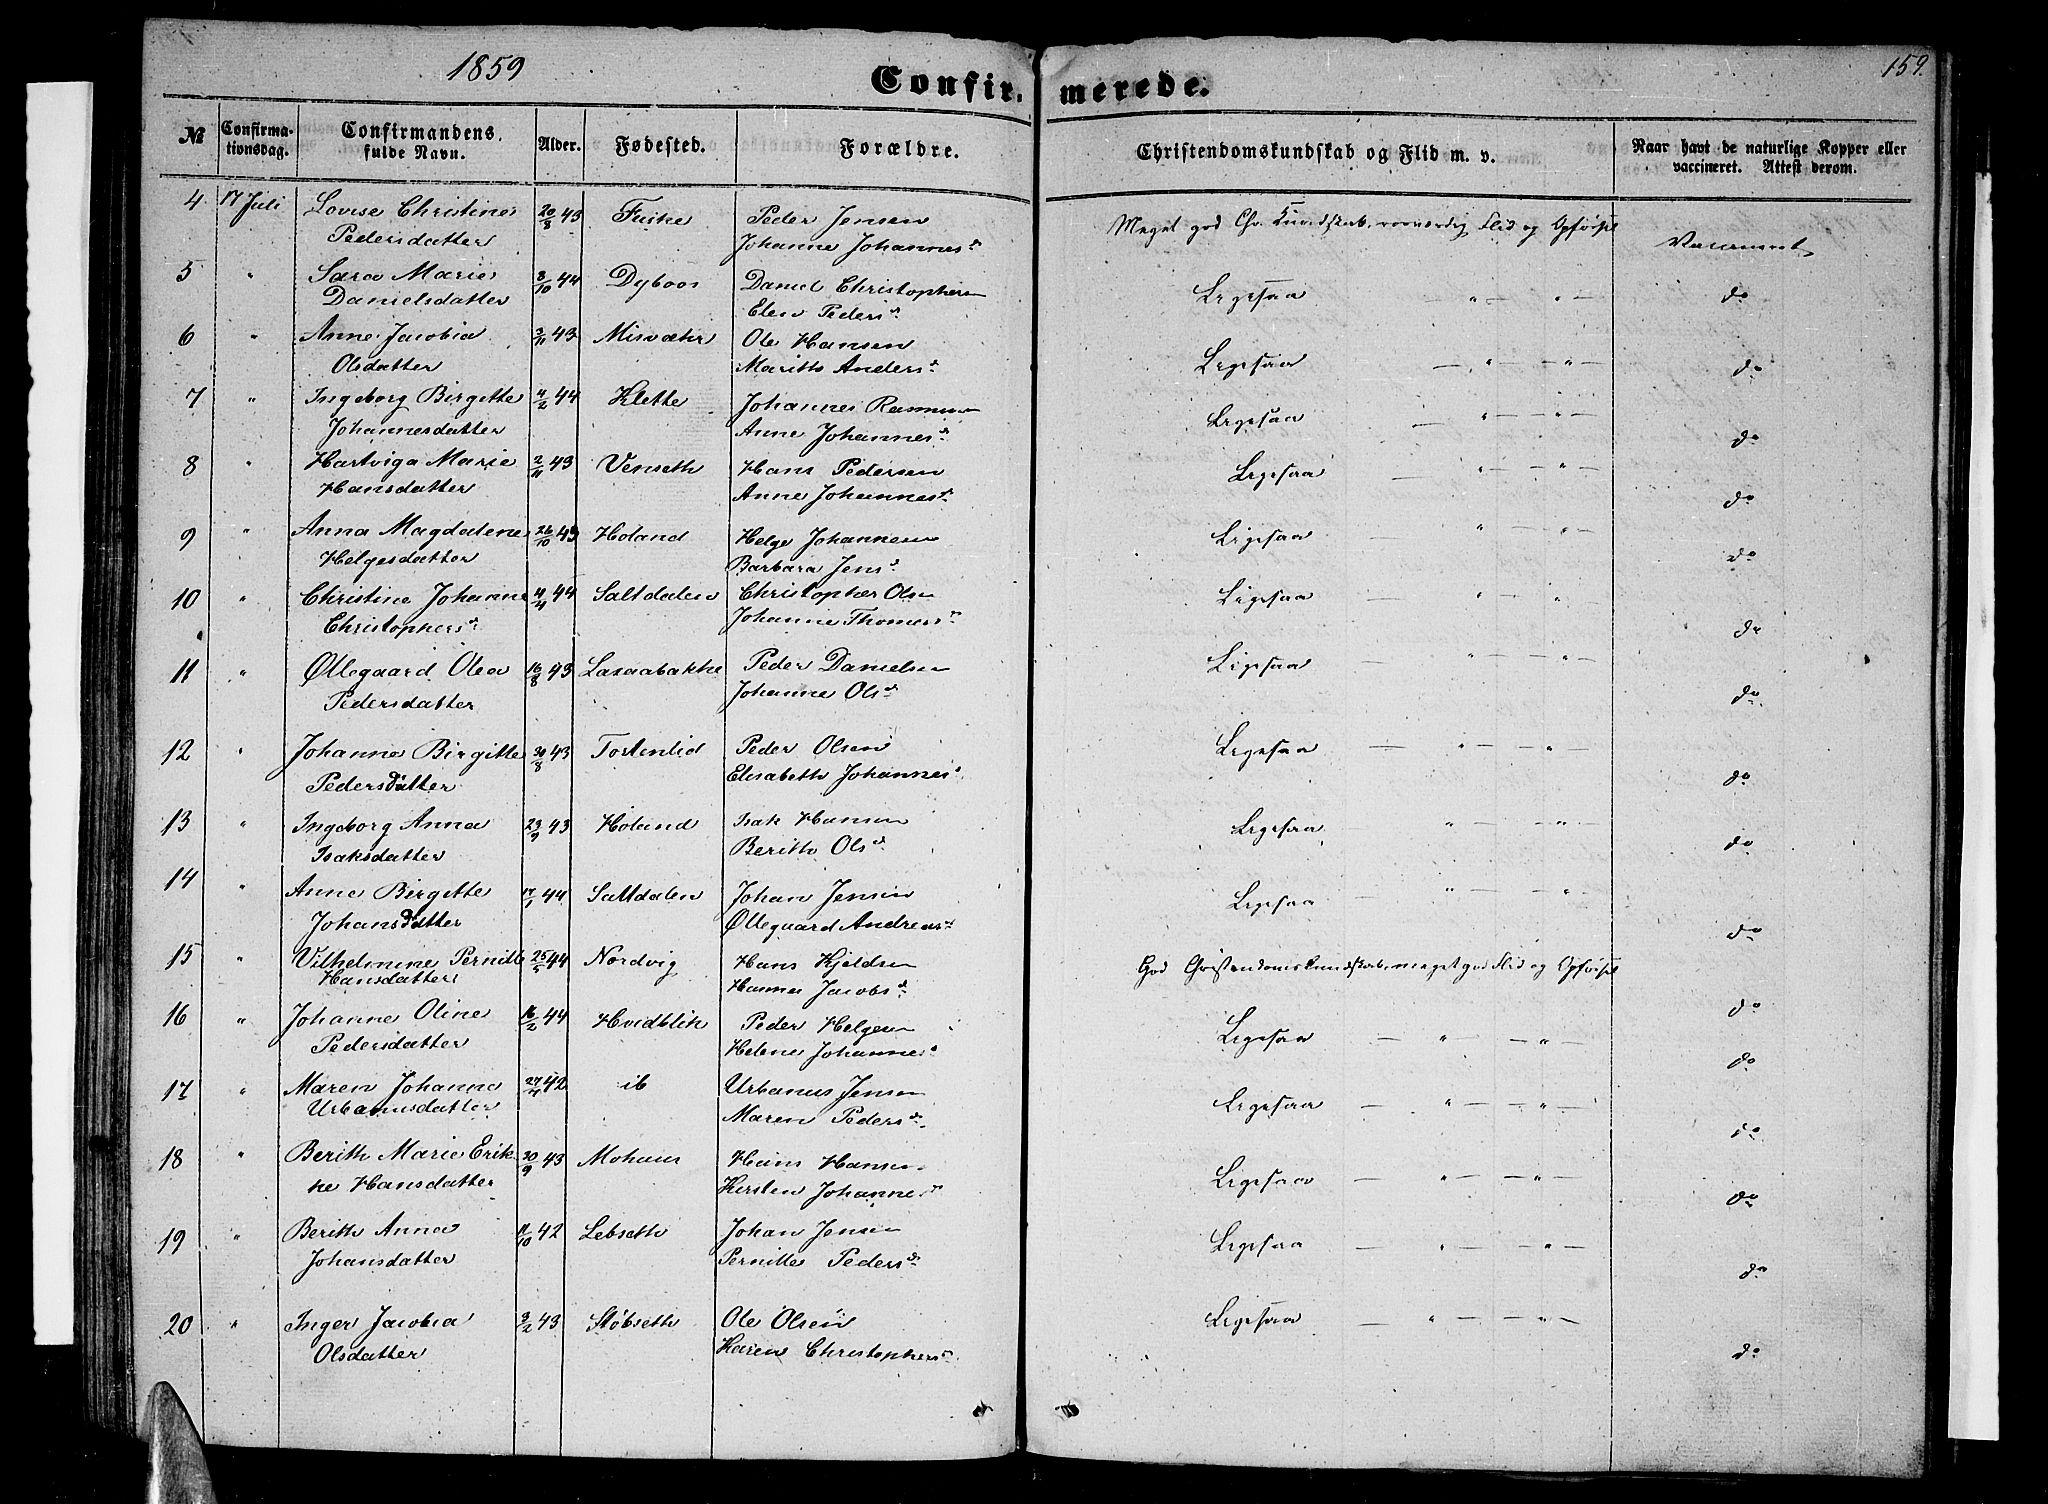 1859
159.
Confirmerede.
№
Confirmationsdag.
Confirmandens fulde Navn.
Alder.
Fødested.
Forældre.
Christendomskundskab og Flid m. v.
Naar havt de naturlige Kopper eller vaccineret. Attest derom.
4 17 Juli Lovise Christine 20/8 43 Fuske Peder Jensen Meget god Chr. Kundskab, roesværdig Flid og Opførsel Vaccineret
Pedersdatter Johanne Johannesd.
5 " Sara Marie 8/10 44 Daniel Christophersen Ligesaa — " — " — do
Danielsdatter Elen Pedersd.
6 " Anne Jacobia 43 Misvæhr Ole Hansen Ligesaa — " — " — do
Olsdatter Marith Andersd.
7 " Ingeborg Birgitte 4/2 44 Klette Johannes Rasmussen Ligesaa — " — " — do
Johannesdatter Anne Johannesd.
8 " Hartviga Marie 2/11 43 Venseth Hans Pedersen Ligesaa — " — " — do
Hansdatter Anne Johannesd.
9 " Anna Magdalene 26/10 43 Holand Helge Johannesen Ligesaa — " — " — do
Helgesdatter Barbara Jensd.
10 " Christine Johanne 4/4 44 Saltdalen Christopher Olsen Ligesaa — " — " — do
Christophersd. Johanne Thomesd.
11 " Øllegaard Olea 16/8 43 Laxaabakke Peder Danielsen Ligesaa — " — " — do
Pedersdatter Johanne Olsd.
12 " Johanna Birgitte 30/8 43 Tostenlid Peder Olsen Ligesaa — " — " — do
Pedersdatter Elisabeth Johannesd.
13 " Ingeborg Anna 23/9 43 Holand Isak Hansen Ligesaa — " — " — do
Isaksdatter Berith Olsd.
14 " Anne Birgitte 17/1 44 Saltdalen Johan Jensen Ligesaa — " — " — do
Johansdatter Øllegaard Andreasd.
15 " Vilhelmine Pernille 25/5 44 Nordvig Hans Kjeldsen God Christendomskundskab, meget god Flid og Opførsel do
Hansdatter Hanna Jacobsd.
16 " Johanne Oline 16/2 44 Hvidblik Peder Helgesen Ligesaa — " — " — do
Pedersdatter Helena Johannesd.
17 " Maren Johanna 27/4 42 ib Urbanus Jensen Ligesaa — " — " — do
Urbanusdatter Maren Pedersd.
18 " Berith Marie Erik- 30/9 43 Mohaus Hans Hansen Ligesaa — " — " — do
ke Hansdatter Kirsten Johannesd.
19 " Berith Anna 11/10 42 Lebseth Johan Jensen Ligesaa — " — " — do
Johansdatter Pernille Pedersd.
20 " Inger Jacobia 3/2 43 Støbseth Ole Olsen Ligesaa — " — " — do
Olsdatter Karen Christophersd.